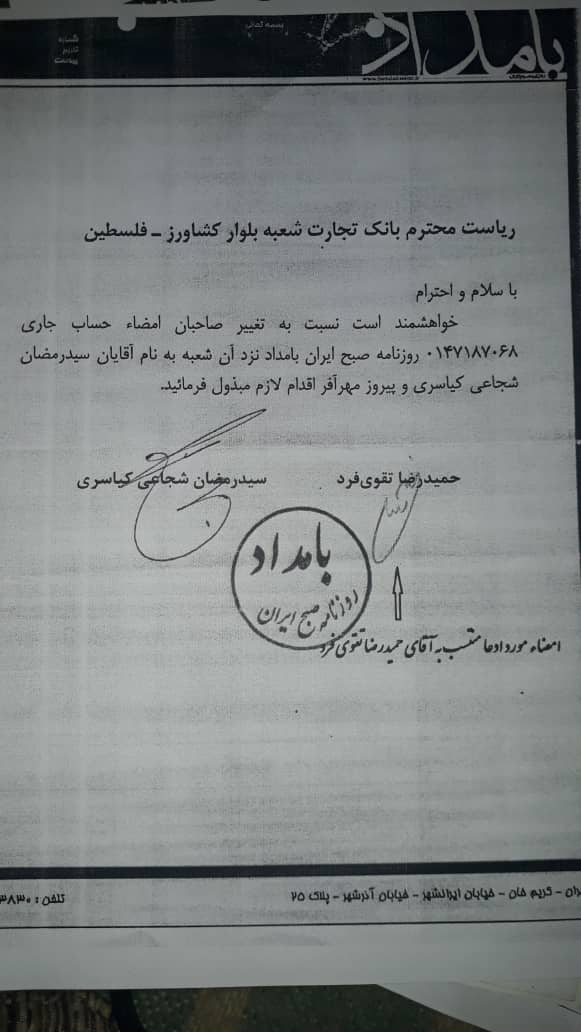 بسمه تعالی
بامداد
شماره
تاریخ
پیوست
ریاست محترم بانک تجارت شعبه بلوار کشاورز ـ فلسطین
با سلام و احترام
خواهشمند است نسبت به تغییر صاحبان امضاء حساب جاری
۰۱۴۷۱۸۷۰۶۸ روزنامه صبح ایران بامداد نزد آن شعبه به نام آقایان سیدرمضان
شجاعی کیاسری و پیروز مهرآفر اقدام لازم مبذول فرمائید.
حمیدرضا تقوی‌فرد
سیدرمضان شجاعی کیاسری
بامداد
روزنامه صبح ایران
امضاء مورد ادعا منتسب به آقای حمیدرضا تقوی فرد
ران - کریم خان - خیابان ایرانشهر - خیابان آذرشهر - پلاک ۲۵
تلفن : ۳۸۳۰